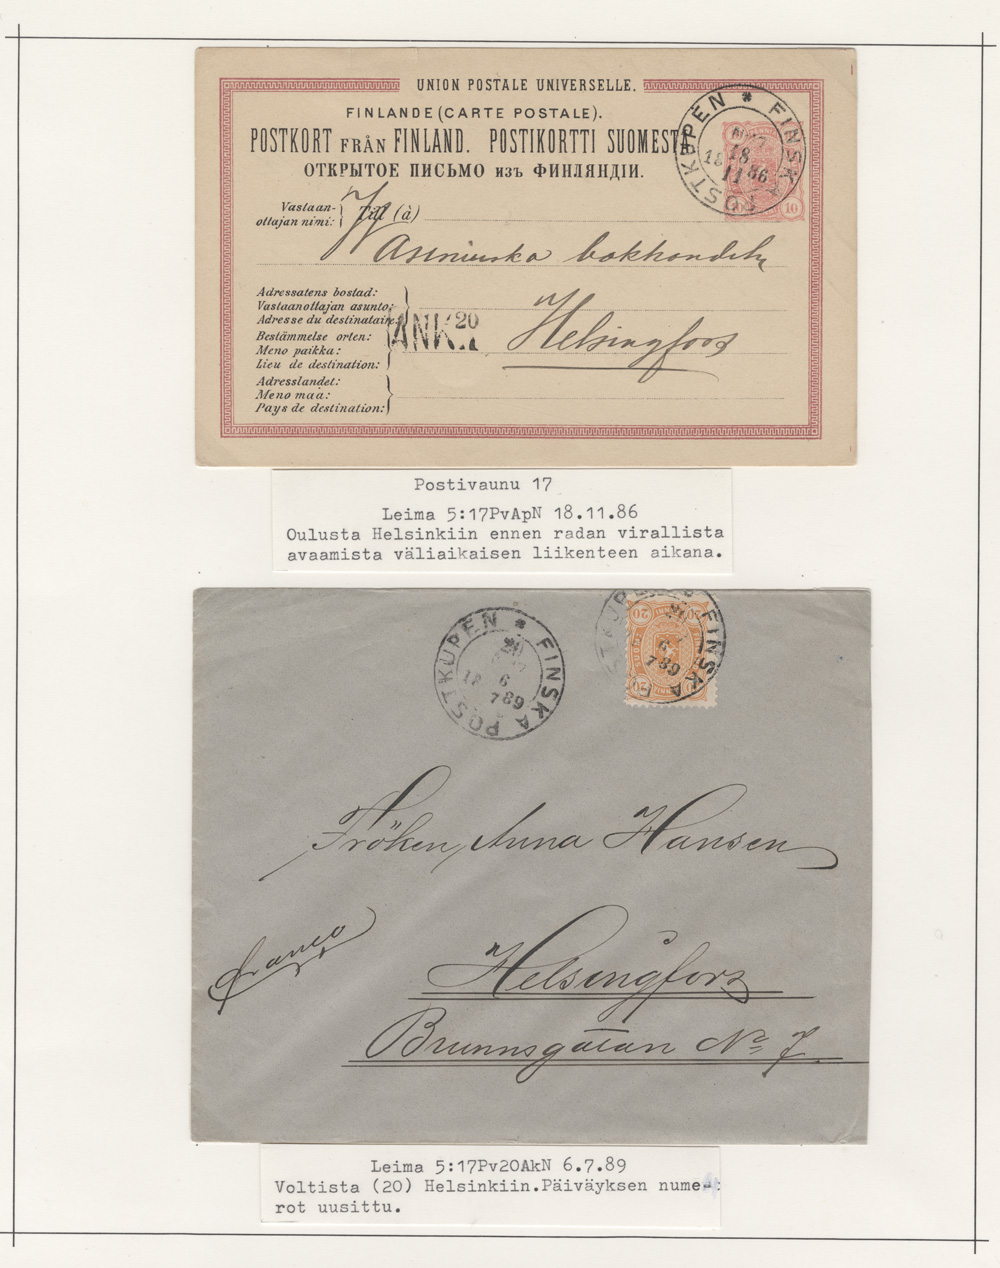 UNION POSTALE UNIVERSELLE.
FINLANDE (CARTE POSTALE).
POSTKORT FRÅN FINLAND. POSTIKORTTI SUOMESTA
ОТКРЫТОЕ ПИСЬМО изъ ФИНЛЯНДІИ.
FINSKA POSTKUPEN *
No 17
18
18 86
11
10
Vastaan-
ottajan nimi:
Till (à)
Waseniuska bokhandeln
Adressatens bostad:
Vastaanottajan asunto:
Adresse du destinataire:
Bestämmelse orten:
Meno paikka:
Lieu de destination:
ANK. 20
Helsingfors
Adresslandet:
Meno maa:
Pays de destination:
Postivaunu 17
Leima 5:17PvApN 18.11.86
Oulusta Helsinkiin ennen radan virallista
avaamista väliaikaisen liikenteen aikana.
FINSKA POSTKUPEN *
20
6
18 89
7
FINSKA POSTKUPEN
20
6
7 89
20 20
Fröken Anna Hansen
Franco
Helsingfors
Brunnsgatan No 7.
Leima 5:17Pv20AkN 6.7.89
Voltista (20) Helsinkiin.Päiväyksen nume-
rot uusittu.